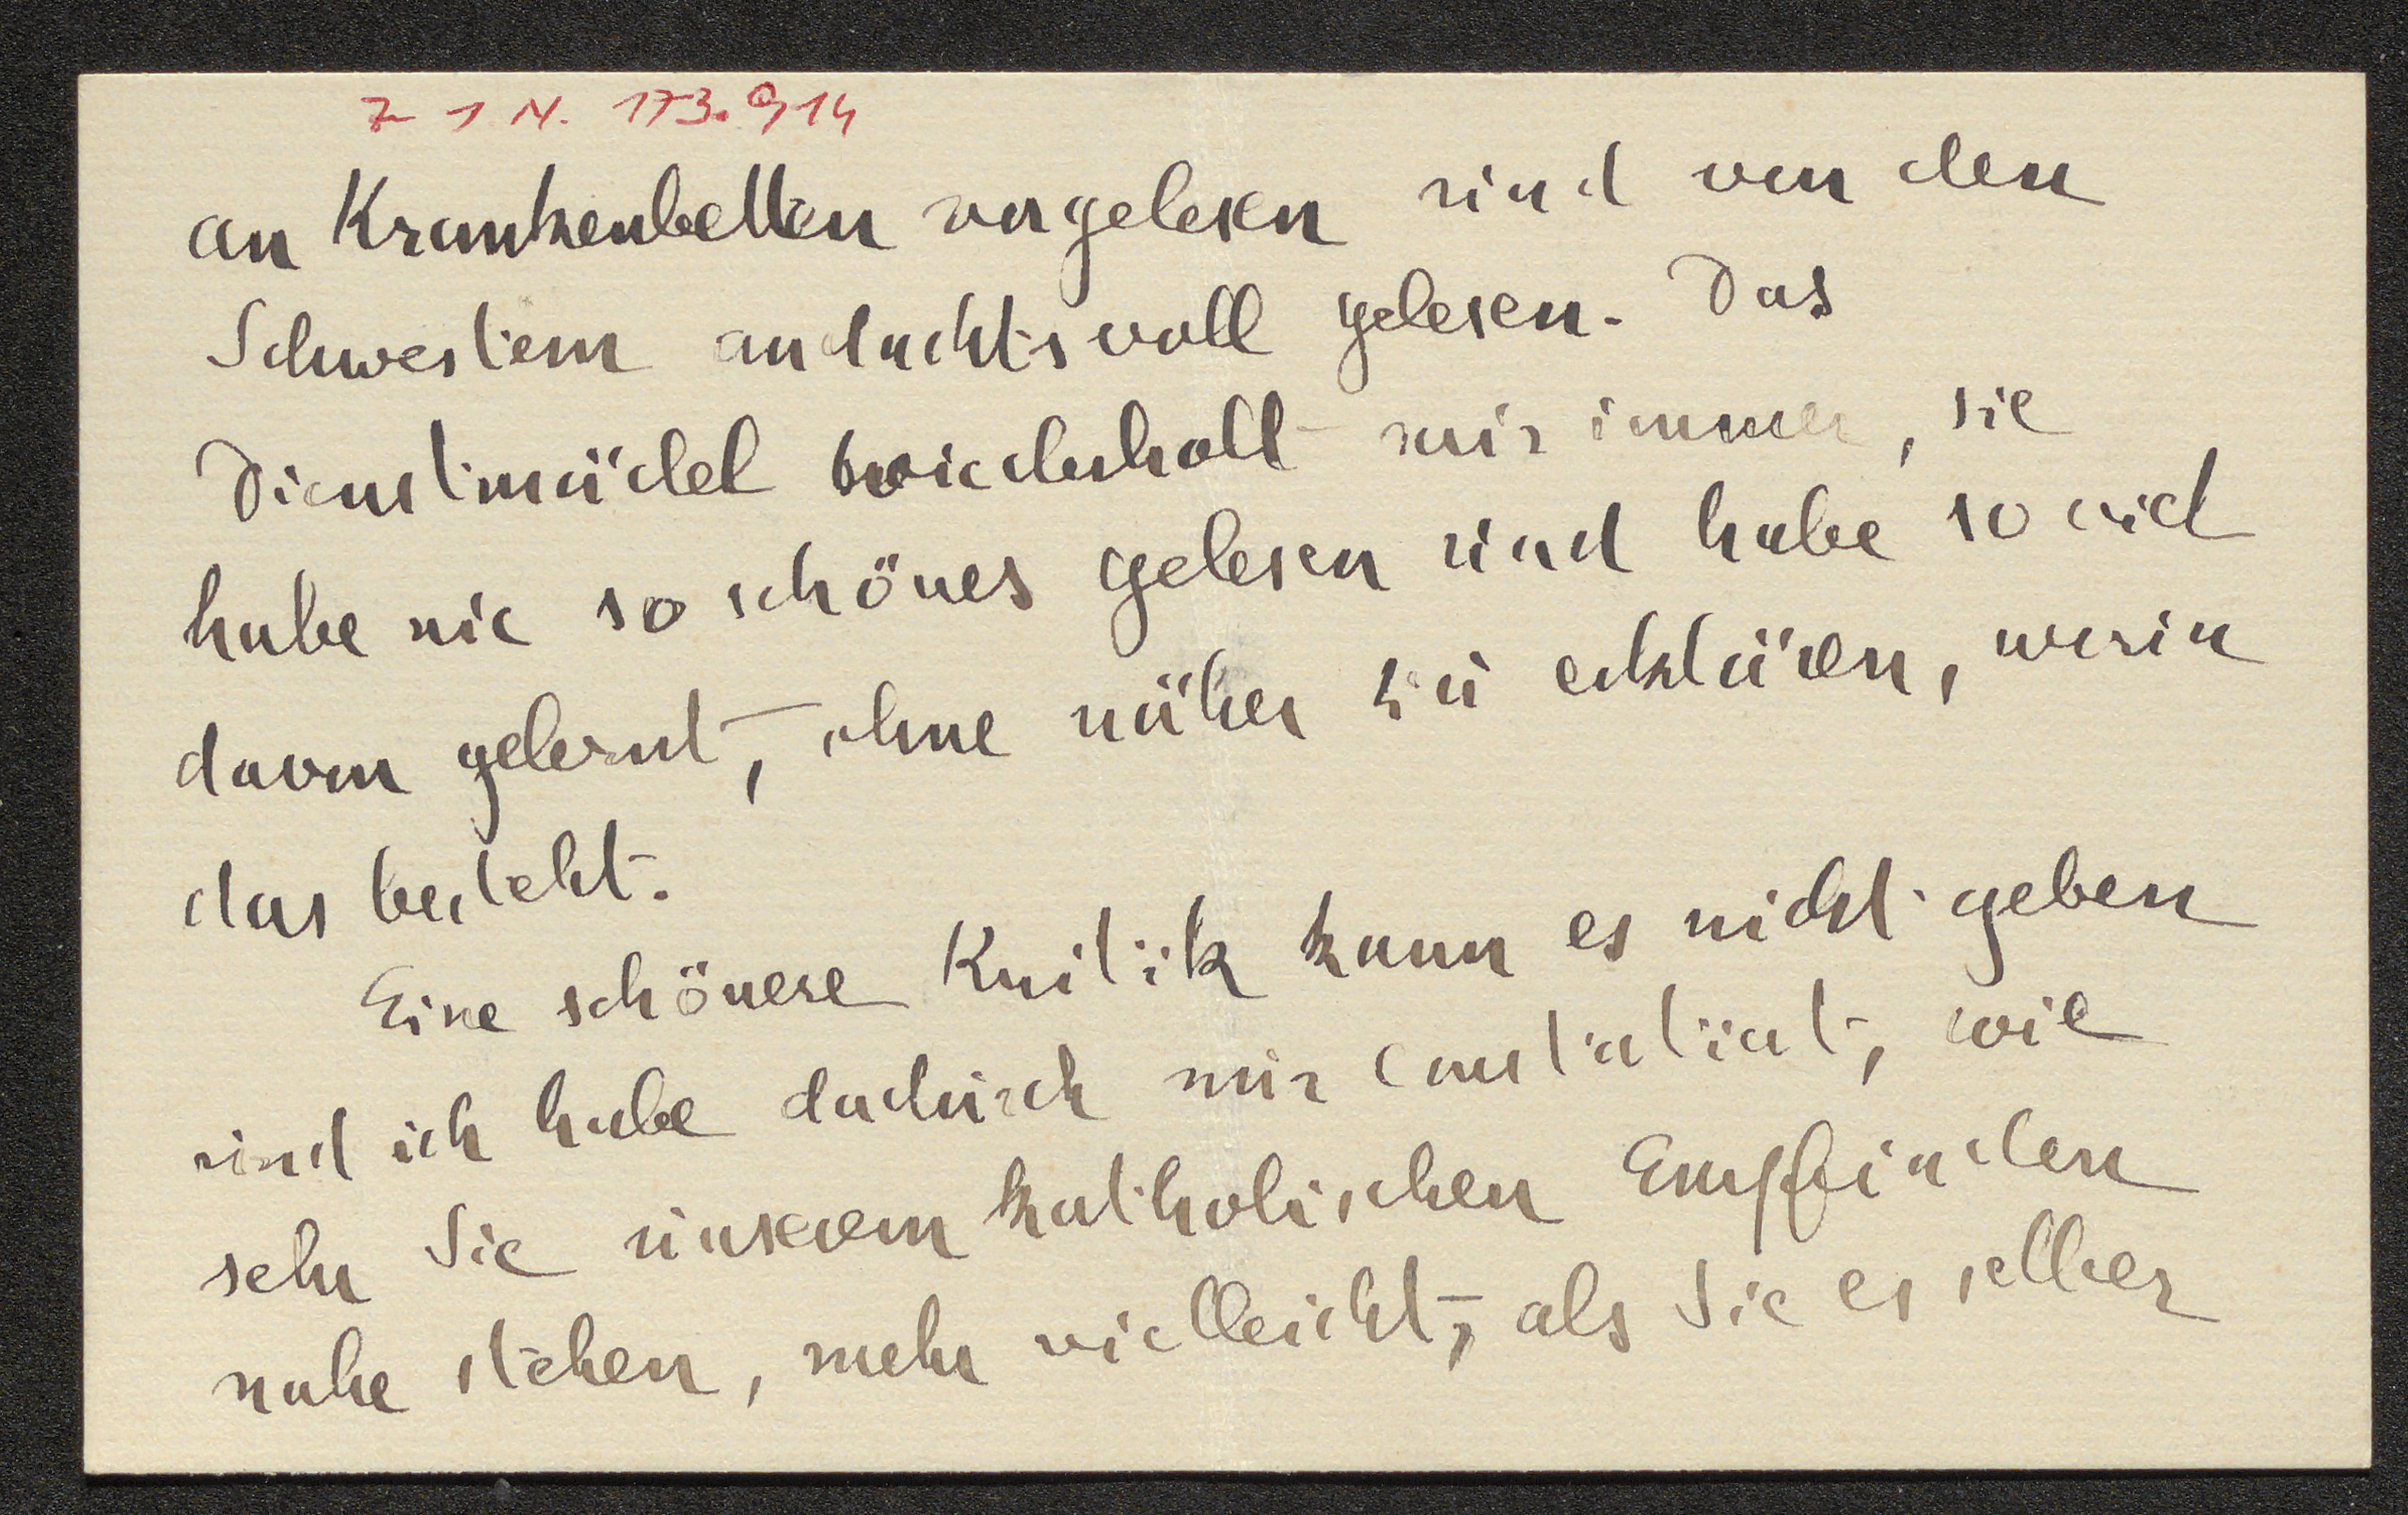 Z 1 N. 173.914
an Krankenbetten vorgelesen und von den
Schwestern andachtsvoll gelesen. Das
Dienstmädel wiederholt mir immer, sie
habe nie so schönes gelesen und habe so viel
davon gelernt, ohne näher zu erklären, worin
das besteht.
Eine schönere Kritik kann es nicht geben
und ich habe dadurch mir constatiert, wie
sehr Sie unserem katholischen Empfinden
nahe stehen, mehr vielleicht, als Sie es selber